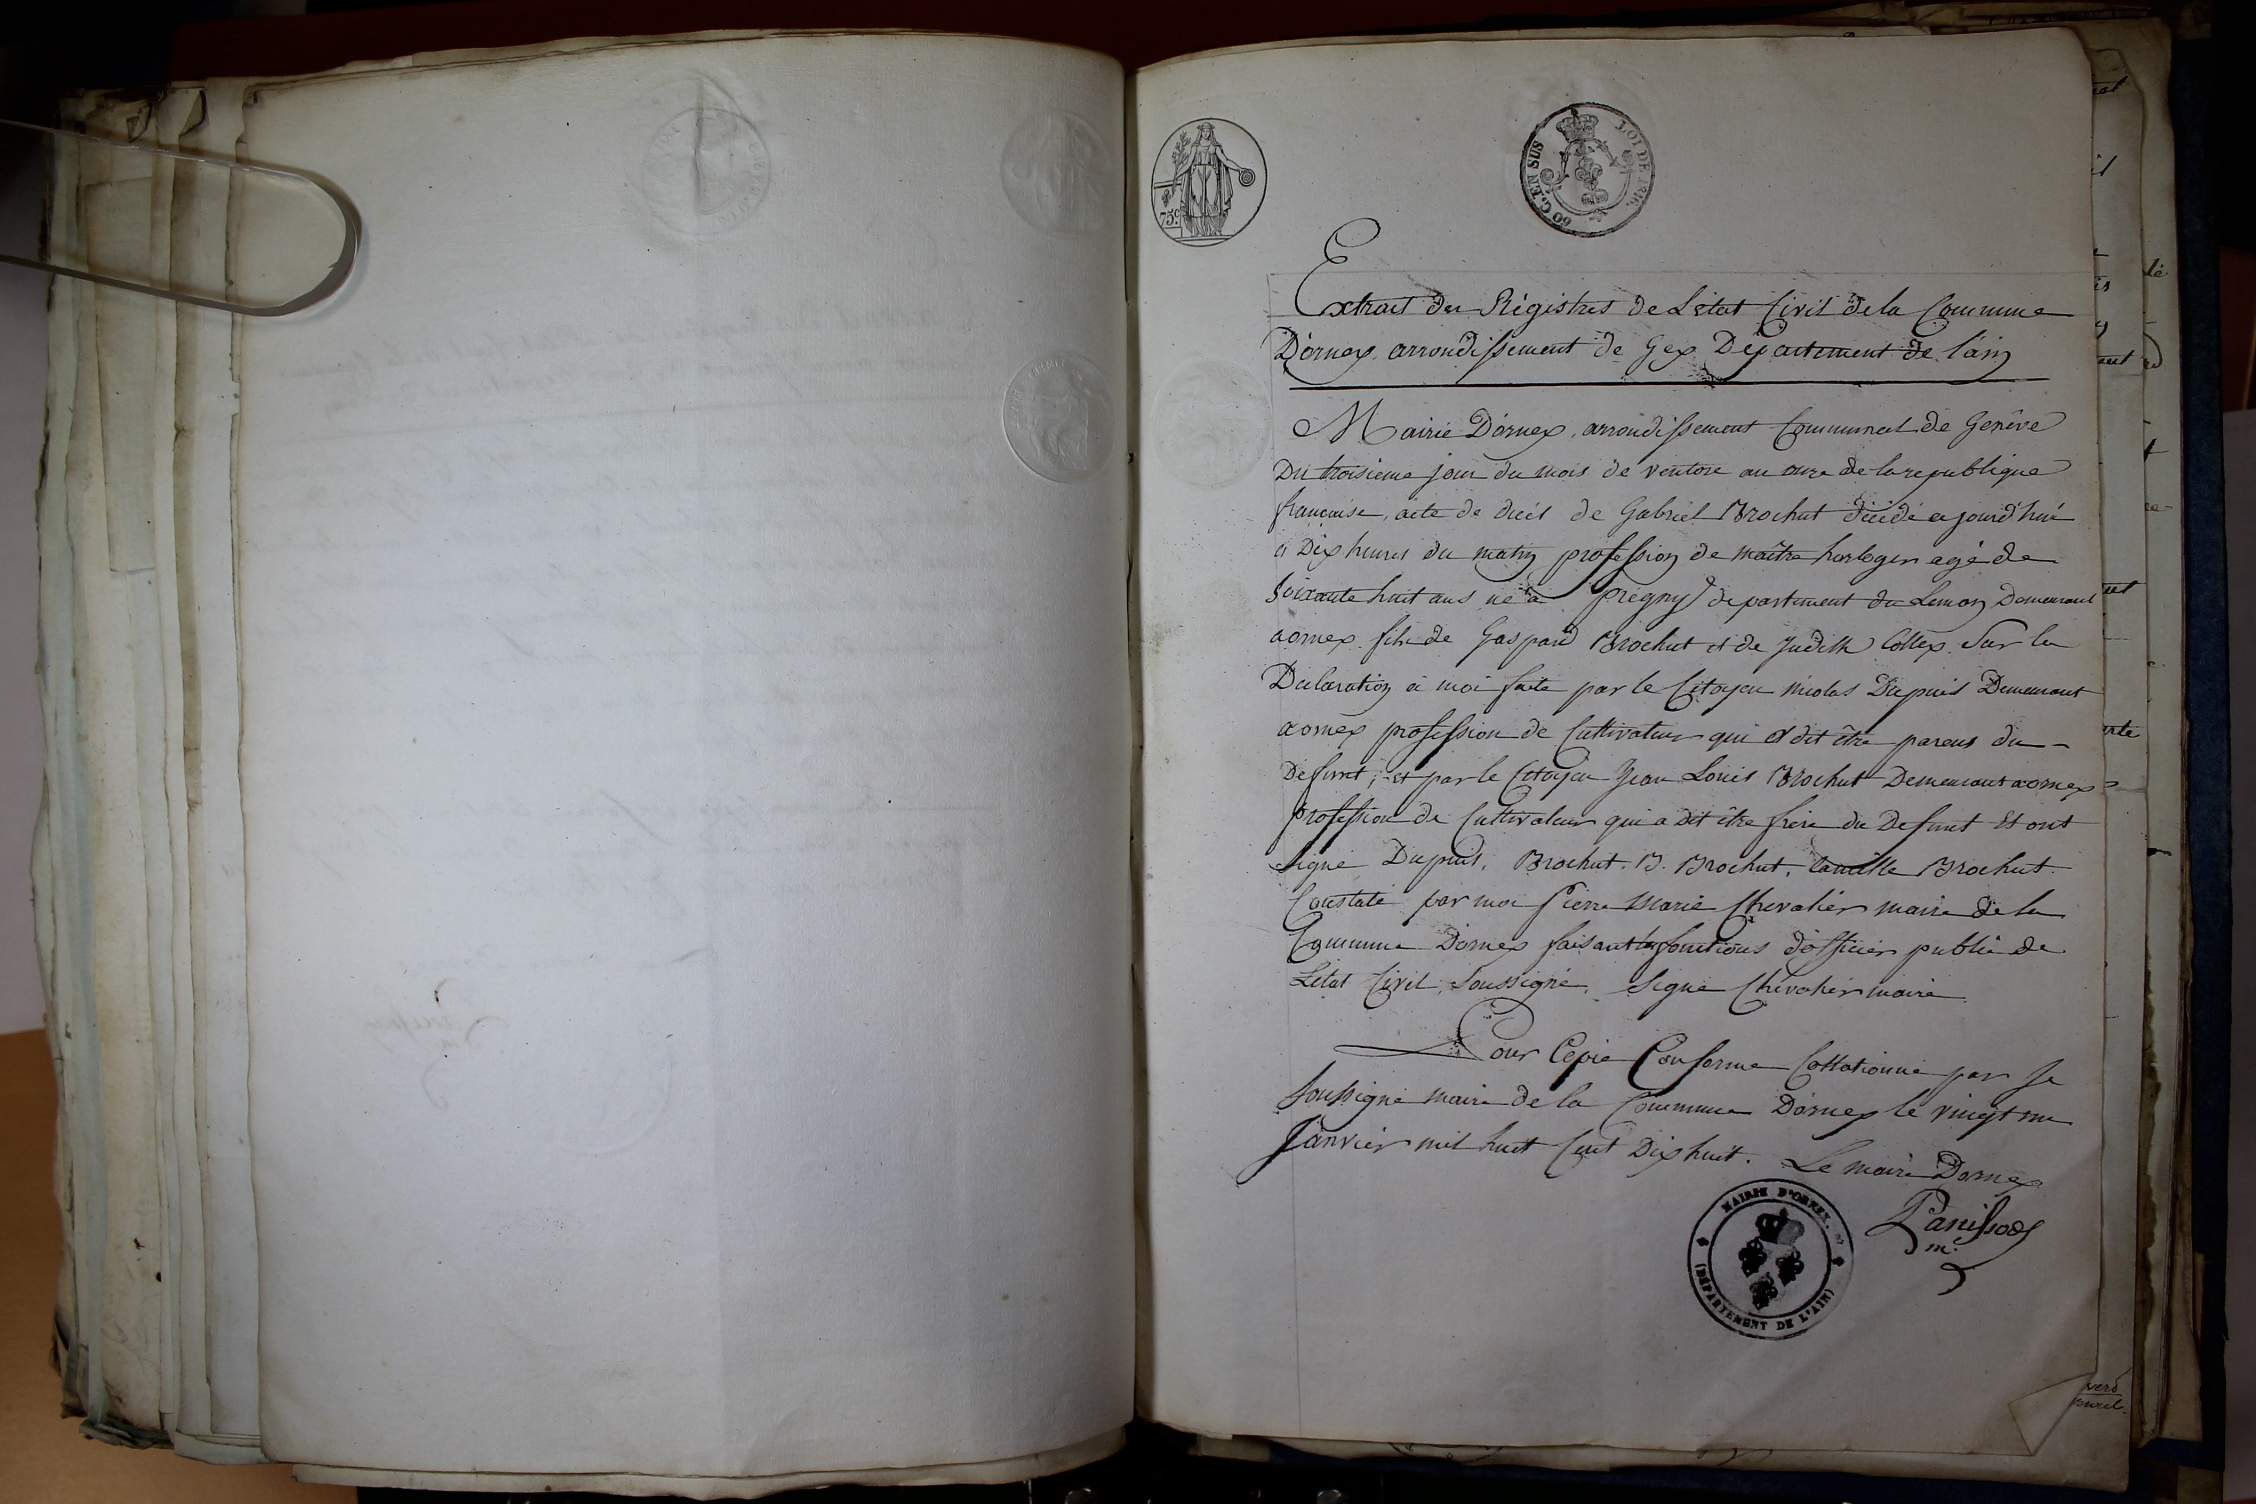 75c.
60 C. EN SUS
LOI DE 1816.
Extrait des Régistres de L'état Civil de la Commune
D'ornex, arrondissement de Gex Département de l'ain
Mairie D'ornex, arrondissement Communal de Genève
Du troisieme jour du mois de ventose an onze de la republique
francaise, acte de décès de Gabriel Brochut décédé ajourd'hui
a Dix heures du matin profession de maître horloger agé de
Soixante huit ans né a pregny departement du Leman Demeurant
a ornex fils de Gaspard Brochut et de Judith Collex. Sur la
Déclaration à moi faite par le Citoyen nicolas Dupuis Demeurant
a ornex profession de Cultivateur qui a dit être parent du
Defunt, et par le Citoyen Jean Louis Brochut Demeurant a ornex
profession de Cultivateur qui a Dit être frère du Defunt Et ont
Signé Dupuis, Brochut. B. Brochut, Brochut.
Constaté par moi Pierre Marie Chevalier maire de la
Commune D'ornex faisant les fonctions d'officier public de
L'état Civil, Soussigné. Signé Chevalier maire.
Pour Copie Conforme Collationné par Je
Soussigné maire de la Commune D'ornex le vingt un
Janvier mil huit Cent Dix huit. Le maire D'ornex
Panissod
m.
MAIRIE D'ORNEX.
(DÉPARTEMENT DE L'AIN)